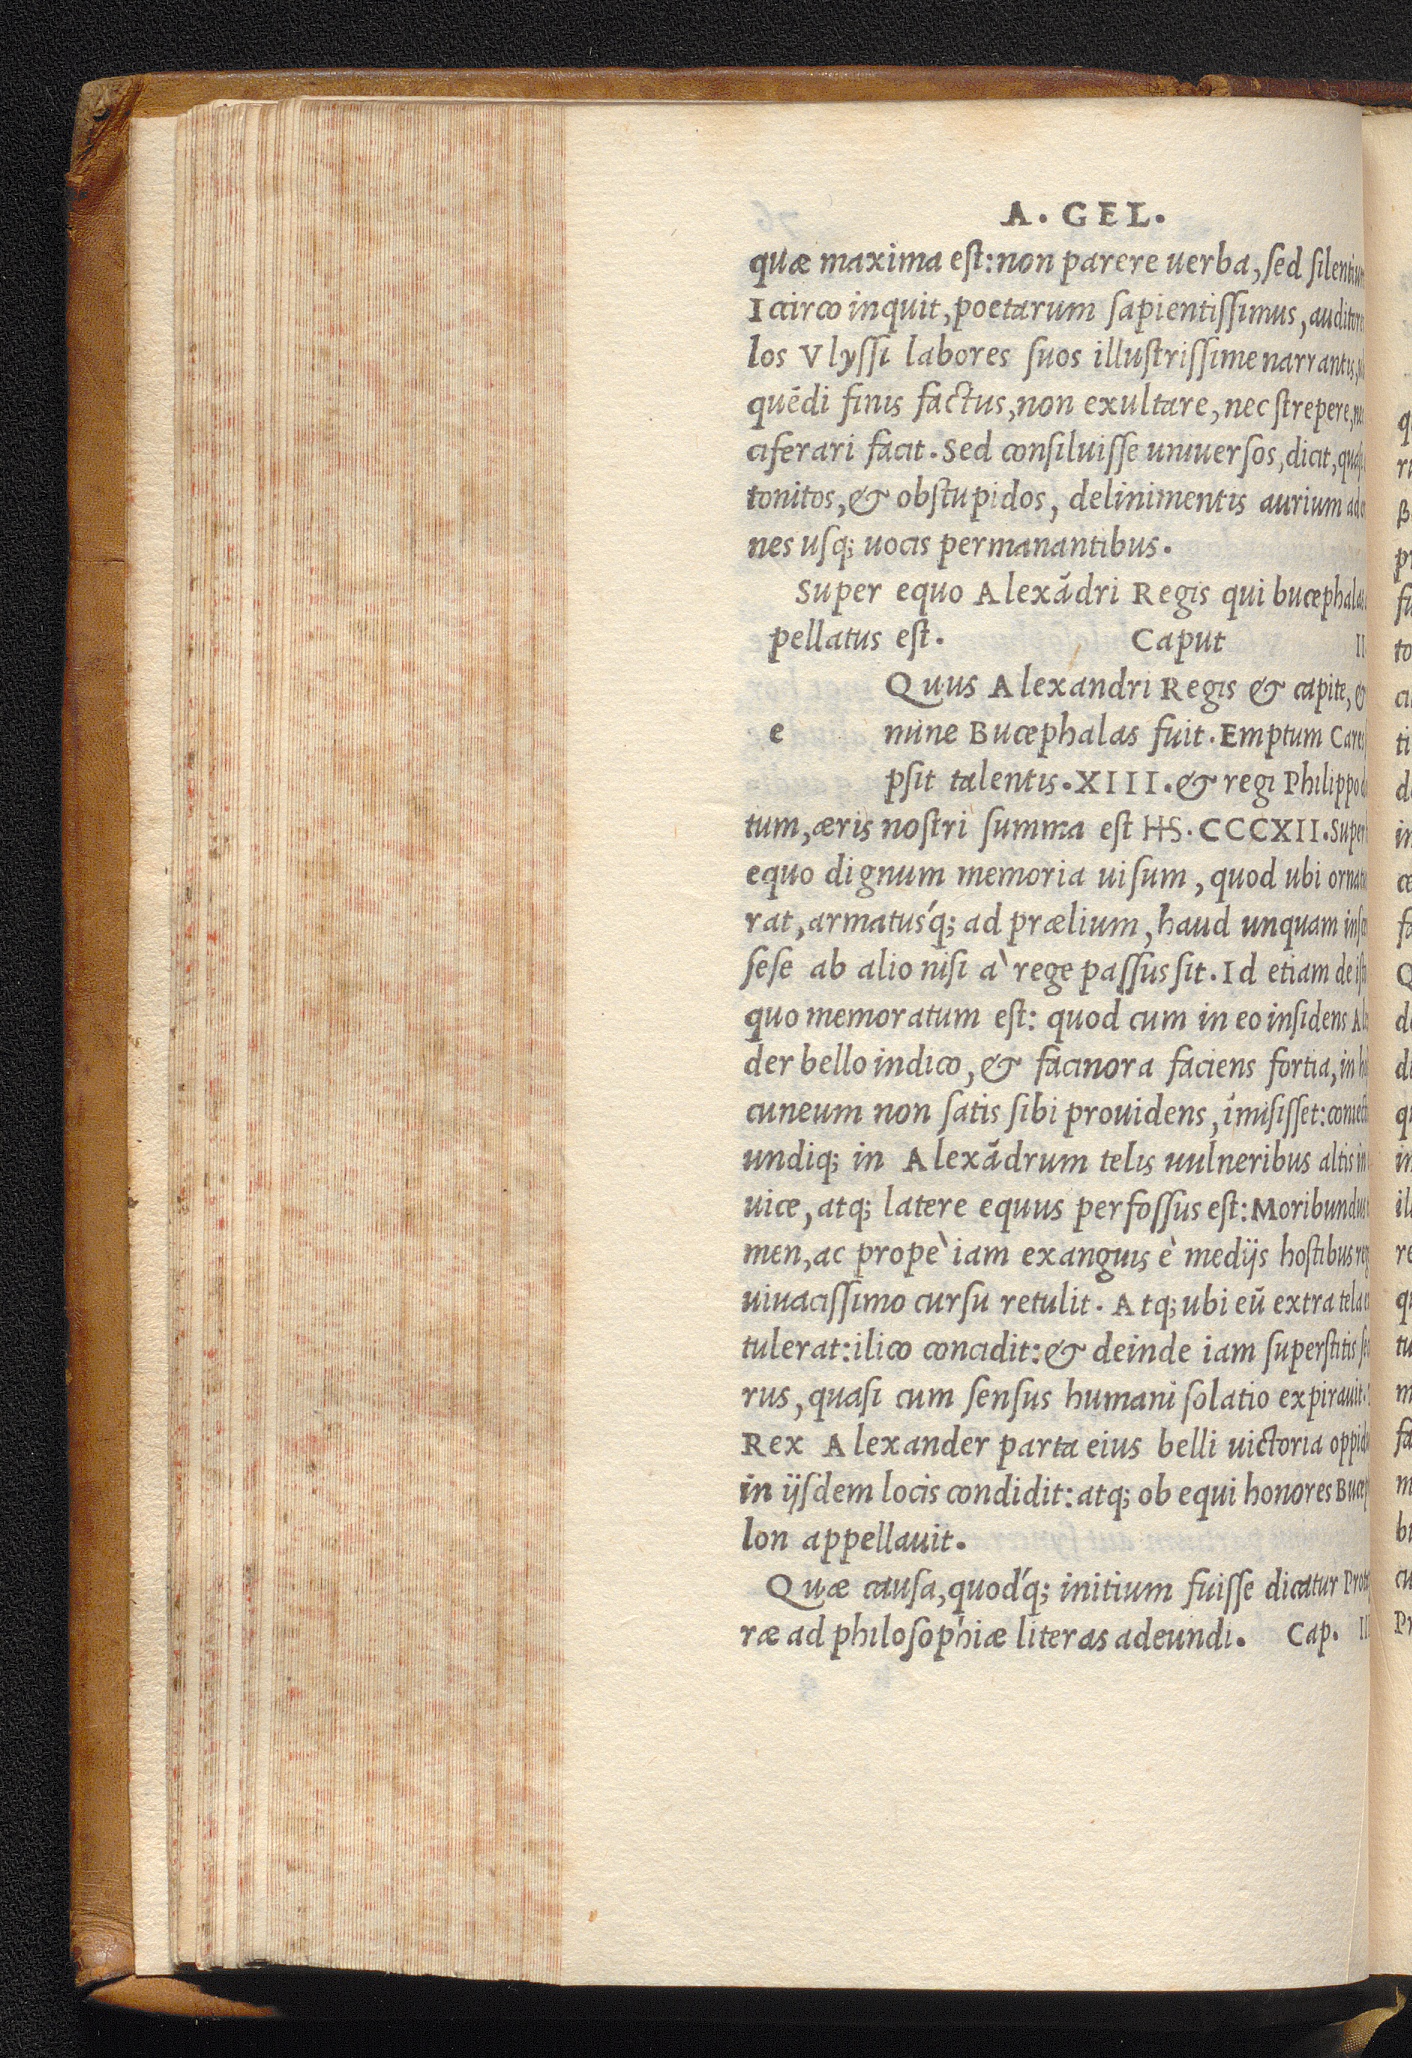 A. GEL.
quæ maxima est: non parere uerba, sed silentium
Icirco inquit, poetarum sapientissimus, auditore
los Vlyssi labores suos illustrissime narrantis,
quēdi finis factus, non exultare, nec strepere,
ciferari facit. Sed consiluisse uniuersos, dicit, quasi
tonitos, & obstupidos, delinimentis aurium ad
nes usq; uocis permanantibus.
Super equo Alexādri Regis qui bucephalas
pellatus est. Caput II
Quus Alexandri Regis & capite, &
e nune Bucephalas fuit. Emptum Cares
psit talentis. XIII. & regi Philippo
tum, æris nostri summa est HS. CCCXII. Super
equo dignum memoria uisum, quod ubi ornatu
rat, armatusq́; ad prælium, haud unquam insc
sese ab alio nisi à rege passus sit. Id etiam de isto
quo memoratum est: quod cum in eo insidens Ale
der bello indico, & facinora faciens fortia, in
cuneum non satis sibi prouidens, īmisisset: coniect
undiq; in Alexādrum telis uulneribus altis in
uice, atq; latere equus perfossus est: Moribundus
men, ac propè iam exanguis è medijs hostibus reg
uiuacissimo cursu retulit. Atq; ubi eū extra tela
tulerat: ilico concidit: & deinde iam superstitis se
rus, quasi cum sensus humani solatio expirauit.
Rex Alexander parta eius belli uictoria oppid
in ijsdem locis condidit: atq; ob equi honores Bucep
lon appellauit.
Quæ causa, quodq́; initium fuisse dicatur Prota
ræ ad philosophiæ literas adeundi. Cap. II